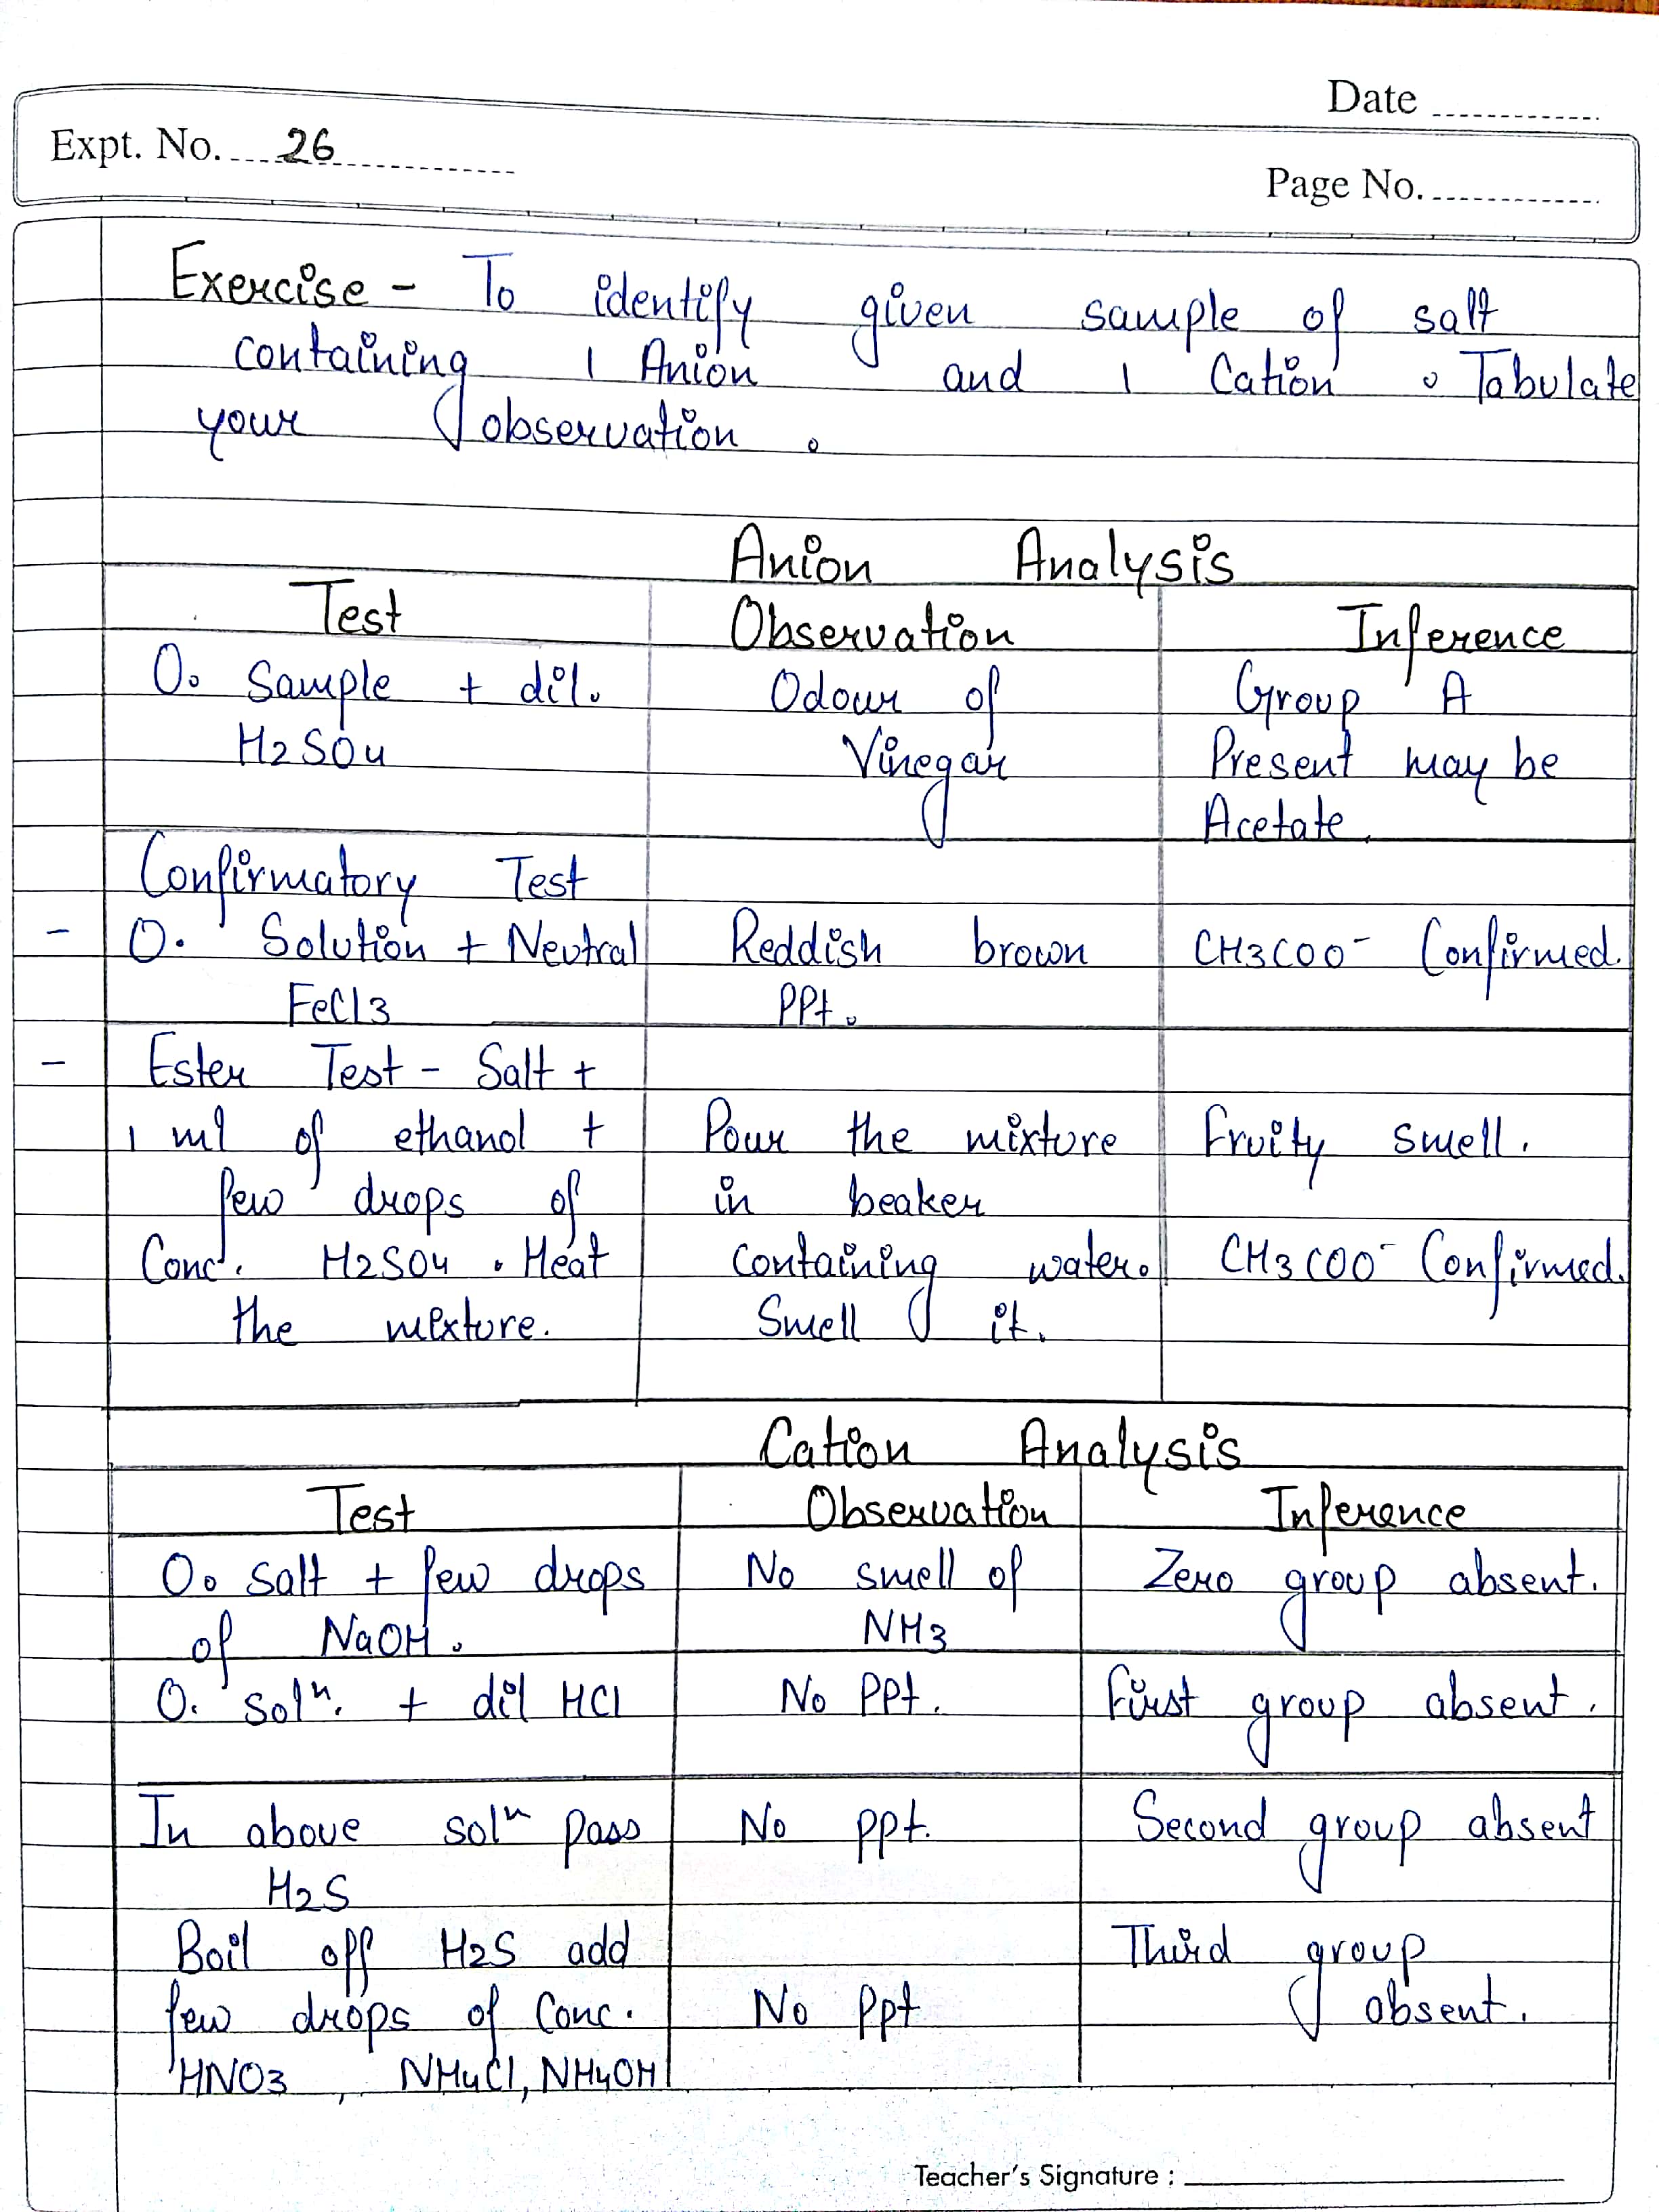 Date
Expt. No. 26
Page No.
Exercise - To identify given sample of salt
containing 1 Anion and 1 Cation. Tabulate
your observation.
Anion Analysis
Test Observation Inference
O. Sample + dil. Odour of Group A
H2SO4 Vinegar Present may be
Acetate.
Confirmatory Test
- O. Solution + Neutral Reddish brown CH3COO- Confirmed.
FeCl3 PPt.
- Ester Test - Salt +
1 ml of ethanol + Pour the mixture Fruity smell.
few drops of in beaker
Conc. H2SO4. Heat containing water. CH3COO- Confirmed.
the mixture. Smell it.
Cation Analysis
Test Observation Inference
O. salt + few drops No smell of Zero group absent.
of NaOH. NH3
O. solⁿ. + dil HCl No PPt. First group absent.
In above solⁿ pass No ppt. Second group absent
H2S
Boil off H2S add Third group
few drops of Conc. No Ppt absent.
HNO3, NH4Cl, NH4OH
Teacher's Signature :